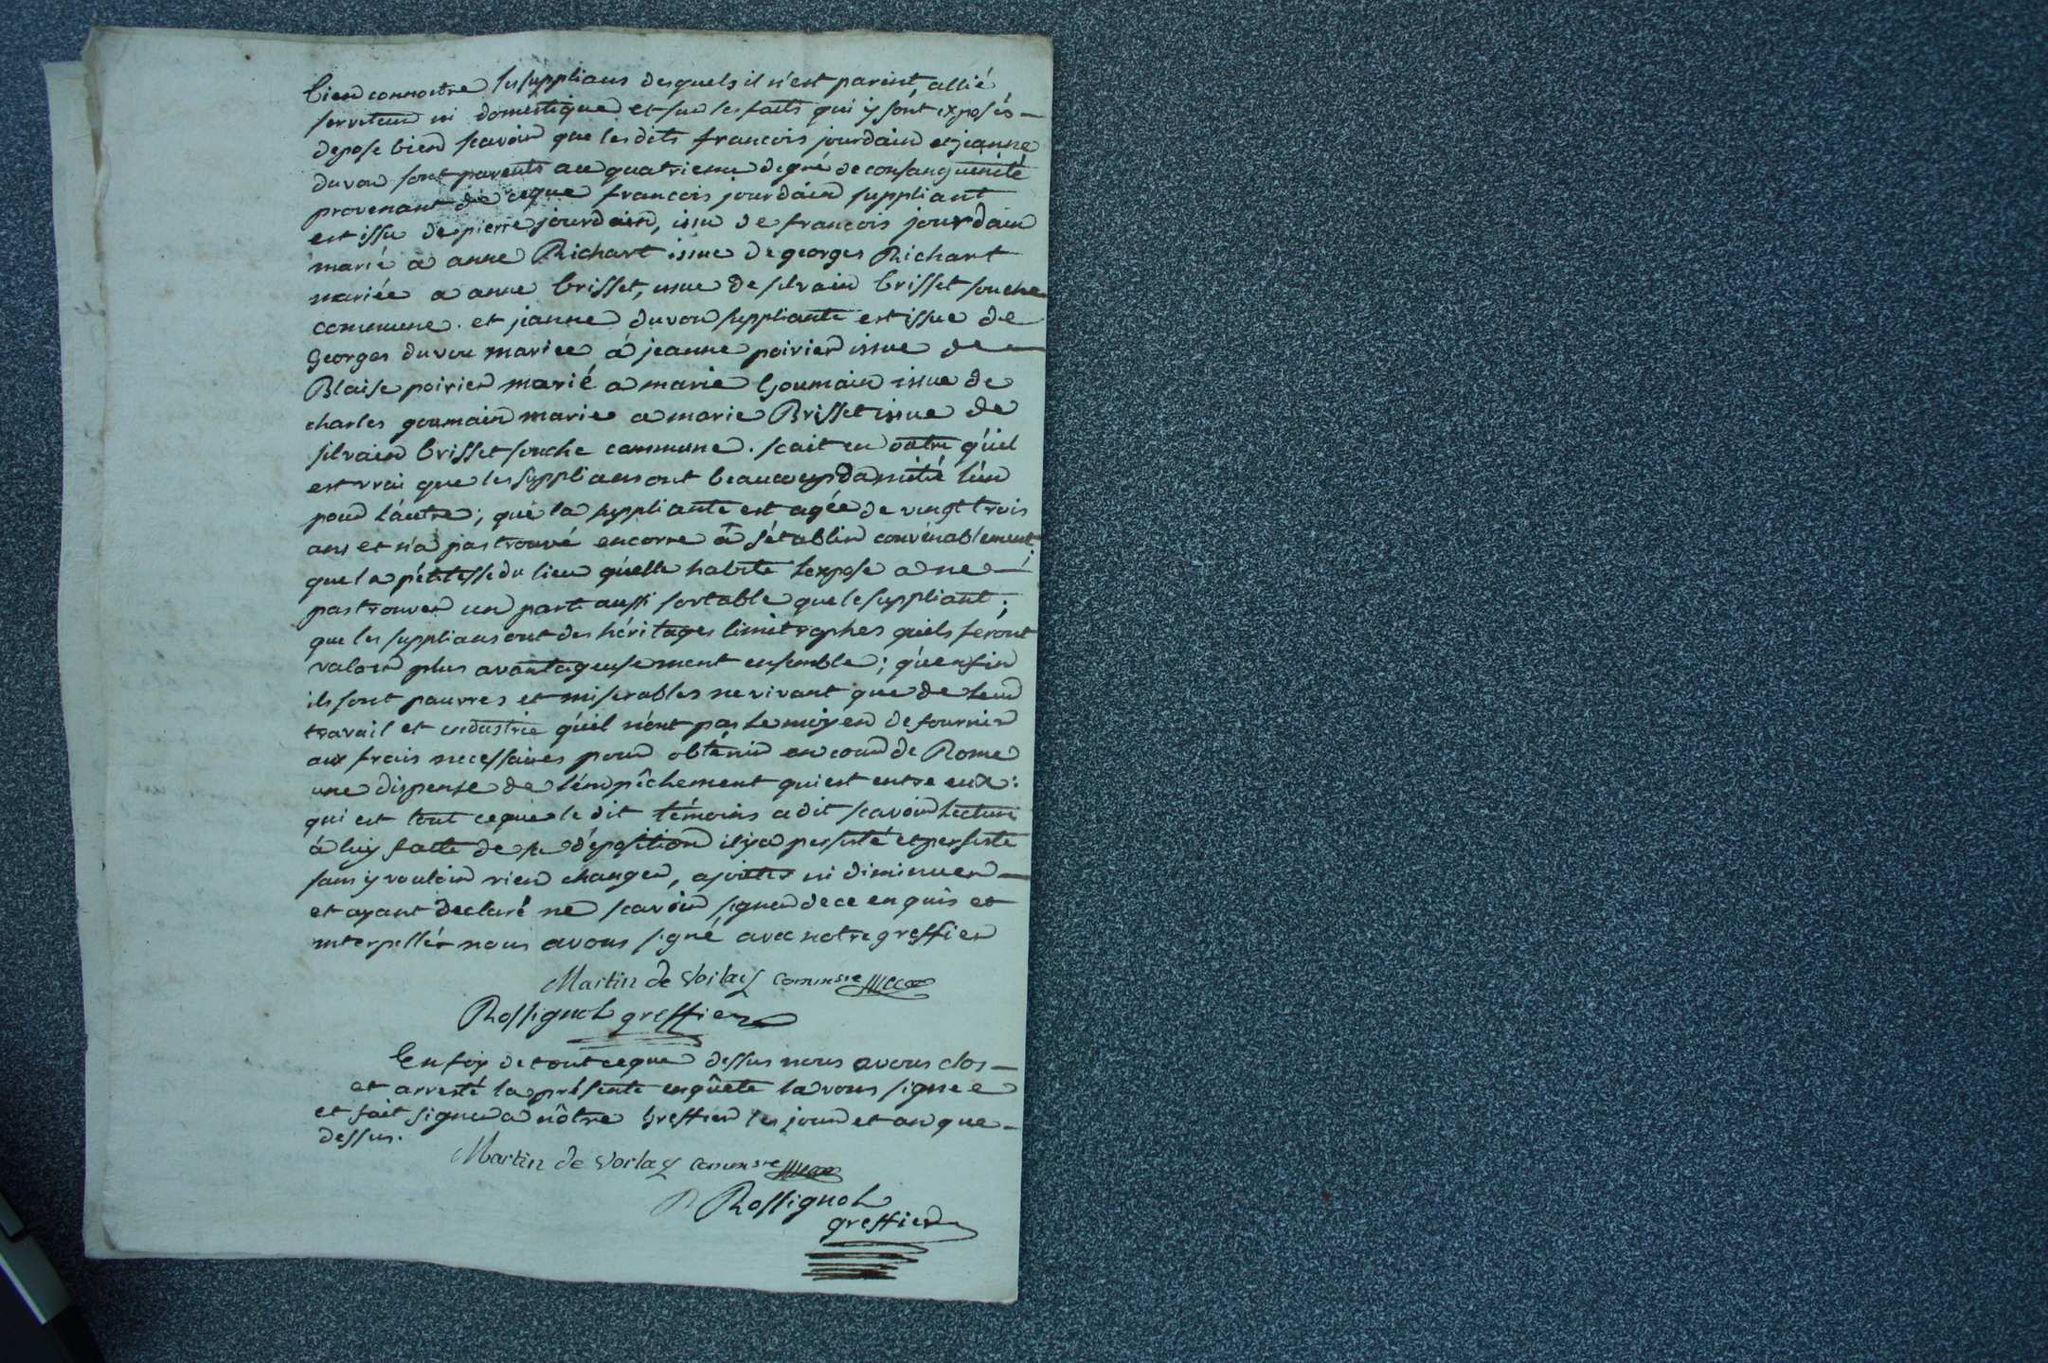 bien connoitre les supplians desquels il n'est parent, allié
serviteur ni domestique et sur les faits qui y sont exposés
depose bien scavoir que les dits françois jourdain et jeanne
duvou sont parents au quatrieme degré de consanguinité
provenant de ce que françois jourdain suppliant
est issu de pierre jourdain, issu de françois jourdain
marié a anne Richart issue de georges Richart
mariée a anne brisset, issue de silvain brisset souche
commune. et jeanne duvou suppliante est issue de
Georges duvou mariée à jeanne poirier issue de
Blaise poirier marié a marie Goumain issue de
charles goumain marié a marie Brisset issue de
silvain brisset souche commune. scait en outre qu'il
est vrai que les supplians ont beaucoup d'amitié l'un
pour l'autre; que la suppliante est agée de vingt trois
ans et n'a pas trouvé encorre à s'établir convénablement
que la pétitesse du lieu qu'elle habite l'expose a ne
pas trouver un parti aussi sortable que le suppliant;
que les supplians ont des héritages limitrophes qu'ils feront
valoir plus avantageusement ensemble; qu'enfin
ils sont pauvres et miserables ne vivant que de leur
travail et industrie qu'il n'ont pas le moyen de fournir
aux frais necessaires pour obtenir en cour de Rome
une dispense de l'empêchement qui est entre eux:
qui est tout ce que le dit témoins a dit scavoir lecture
à luy faitte de sa déposition il y a persisté et persiste
sans y vouloir rien changer, ajouter ni diminuer
et ayant declaré ne scavoir signer de ce enquis et
interpellés nous avons signé avec notre greffier
Martin de Voilay commsre
Rossignol greffier
En foy de tout ce que dessus nous avons clos
et arresté la présente enquête lavons signée
et fait signer a nôtre Greffier les jour et an que
dessus.
Martin de Voilay commsre
Rossignol
greffier